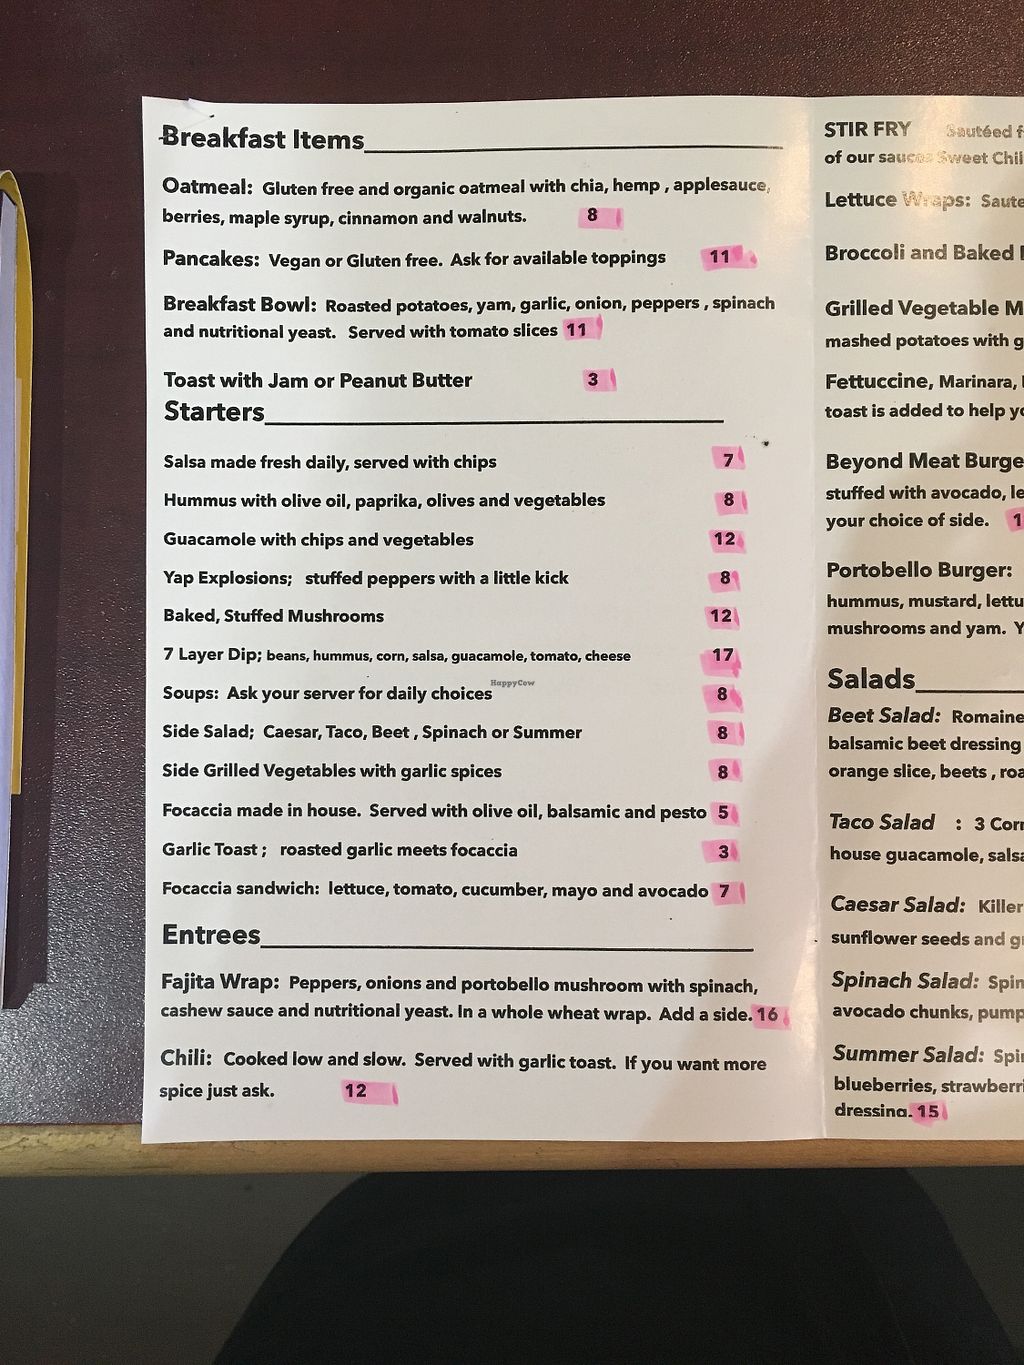 Breakfast Items
Oatmeal: Gluten free and organic oatmeal with chia, hemp , applesauce,
berries, maple syrup, cinnamon and walnuts. 8
Pancakes: Vegan or Gluten free. Ask for available toppings 11
Breakfast Bowl: Roasted potatoes, yam, garlic, onion, peppers , spinach
and nutritional yeast. Served with tomato slices 11
Toast with Jam or Peanut Butter 3
Starters
Salsa made fresh daily, served with chips 7
Hummus with olive oil, paprika, olives and vegetables 8
Guacamole with chips and vegetables 12
Yap Explosions; stuffed peppers with a little kick 8
Baked, Stuffed Mushrooms 12
7 Layer Dip; beans, hummus, corn, salsa, guacamole, tomato, cheese 17
HappyCow
Soups: Ask your server for daily choices 8
Side Salad; Caesar, Taco, Beet , Spinach or Summer 8
Side Grilled Vegetables with garlic spices 8
Focaccia made in house. Served with olive oil, balsamic and pesto 5
Garlic Toast ; roasted garlic meets focaccia 3
Focaccia sandwich: lettuce, tomato, cucumber, mayo and avocado 7
Entrees
Fajita Wrap: Peppers, onions and portobello mushroom with spinach,
cashew sauce and nutritional yeast. In a whole wheat wrap. Add a side. 16
Chili: Cooked low and slow. Served with garlic toast. If you want more
spice just ask. 12
STIR FRY Sautéed
of our sauces Sweet
Lettuce Wraps:
Broccoli and Baked
Grilled Vegetable
mashed potatoes with
Fettuccine, Marinara,
toast is added to help
Beyond Meat
stuffed with avocado,
your choice of side.
Portobello Burger:
hummus, mustard,
mushrooms and yam.
Salads
Beet Salad: Romaine
balsamic beet dressing
orange slice, beets ,
Taco Salad : 3
house guacamole,
Caesar Salad: Killer
sunflower seeds and
Spinach Salad:
avocado chunks,
Summer Salad:
blueberries,
dressing. 15